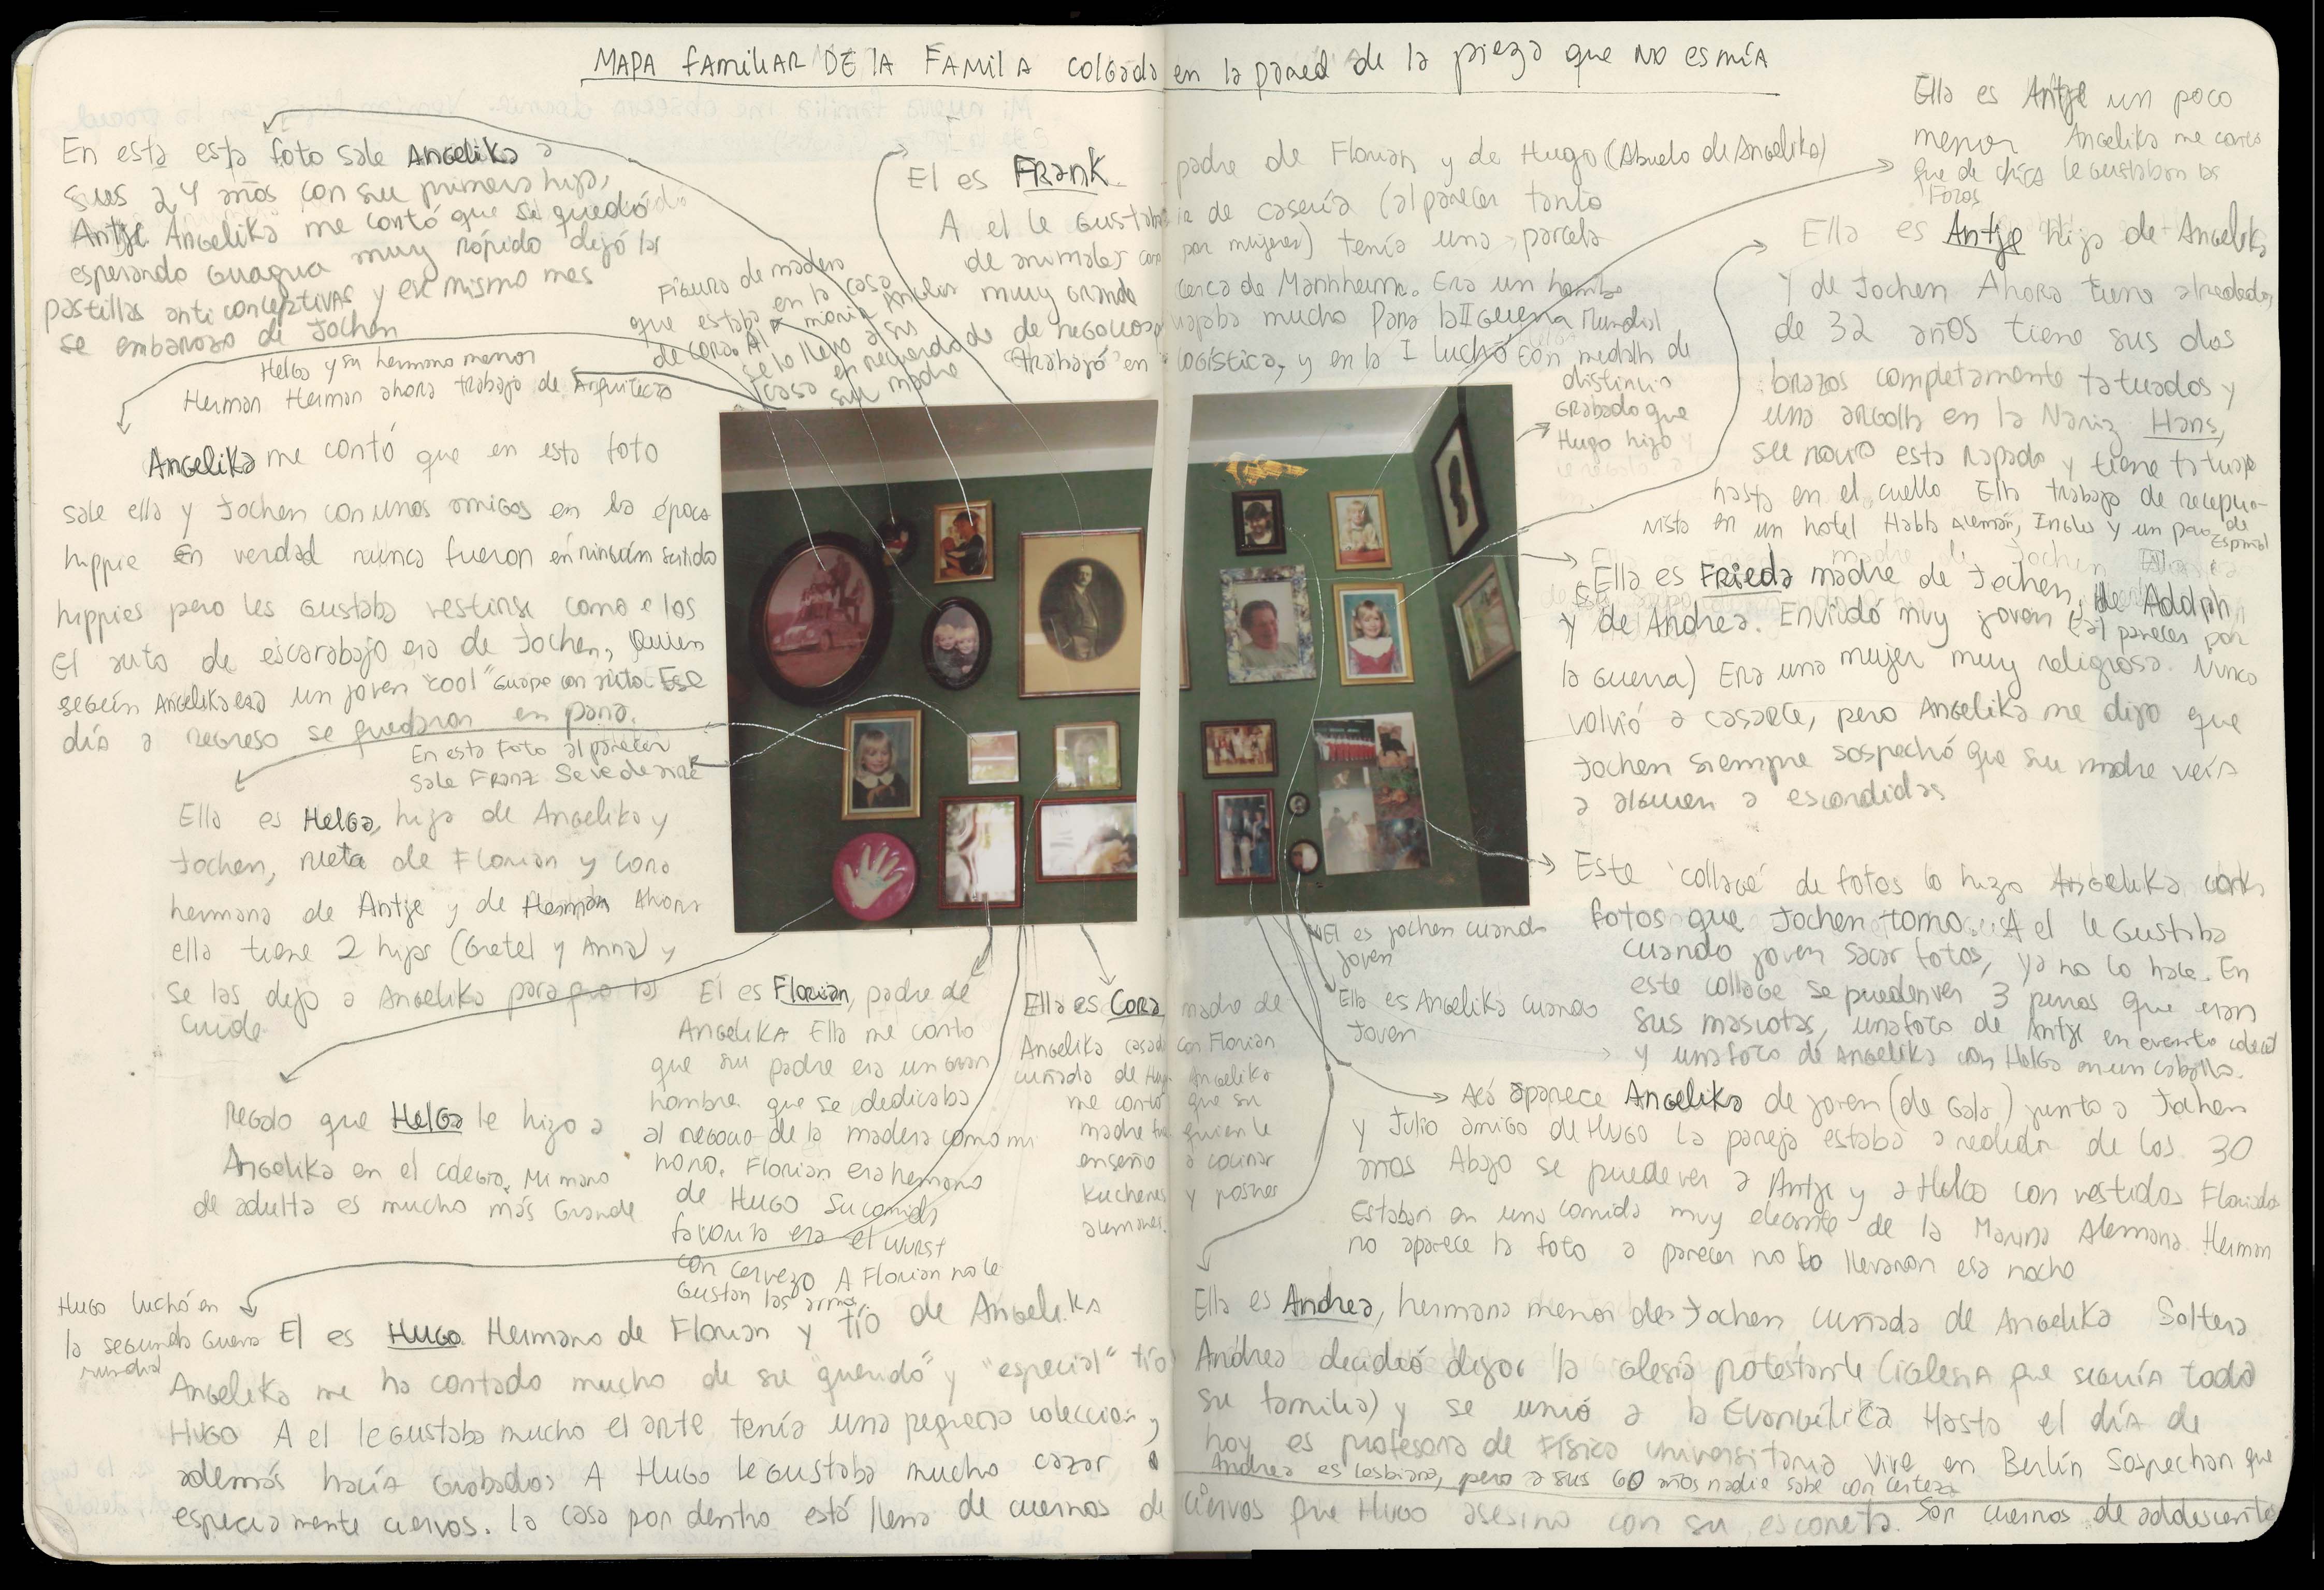 MAPA FAMILIAR DE LA FAMILIA colgada en la pared de la pieza que NO es mía
En esta esta foto sale Angelika a
sus 24 años con su primera hija,
Antje. Angelika me contó que se quedó
esperando guagua muy rápido dejó las
pastillas anticonceptivas y ese mismo mes
se embarazo de Jochen
Helga y su hermano menor
Herman Herman ahora trabaja de Arquitecto
Angelika me contó que en esta foto
sale ella y Jochen con unos amigos en la época
hippie En verdad nunca fueron en ningún sentido
hippies pero les gustaba vestirse como ellos
El auto de escarabajo era de Jochen, quien
según Angelika era un joven "cool" guapo con auto. Ese
día a regreso se quedaron en pana.
En esta foto al parecer
sale Franz. Se ve de
Ella es Helga, hija de Angelika y
Jochen, nieta de Florian y Cora
hermana de Antje y de Herman Ahora
ella tiene 2 hijas (Gretel y Anna) y
se las dejo a Angelika para que las
cuide
Regalo que Helga le hizo a
Angelika en el colegio. Mi mano
de adulta es mucho más grande
Figura de madera
que estaba en la casa
de Cora. Al morir Angelika
se lo llevó a su
casa en recuerdo de
su madre
El es Frank padre de Florian y de Hugo (Abuelo de Angelika)
A el le gustaba ir de casería (al parecer tanto
de animales como por mujeres) tenía una parcela
muy grande cerca de Mannheim. Era un hombre
de negocios viajaba mucho Para la II guerra Mundial
trabajó en logística, y en la I luchó con medalla de
distinción
Grabado que
Hugo hizo
Ella es Antje un poco
menor Angelika me contó
que de chica le gustaban las
Fotos
Ella es Antje hija de Angelika
y de Jochen Ahora tiene alrededor
de 32 años tiene sus dos
brazos completamente tatuados y
una argolla en la Nariz Hans,
su novio esta rapado y tiene tatuaje
hasta en el cuello Ella trabaja de recepcio-
nista en un hotel Habla Alemán, Inglés y un poco de
Español
Ella es Frieda madre de Jochen, de Adolph
y de Andrea. Enviudó muy joven (al parecer por
la guerra) Era una mujer muy religiosa. Nunca
volvió a casarce, pero Angelika me dijo que
Jochen siempre sospechó que su madre veía
a alguien a escondidas
Este 'collage' de fotos lo hizo Angelika con las
fotos que Jochen tomo. A el le gustaba
cuando joven sacar fotos, ya no lo hace. En
este collage se pueden ver 3 perros que eran
sus mascotas, una foto de Antje en evento
y una foto de Angelika con Helga en un caballo.
El es jochen cuando
joven
Ella es Angelika cuando
joven
Acá aparece Angelika de joven (de gala) junto a Jochen
y Julio amigo de Hugo La pareja estaba alrededor de los 30
años Abajo se puede ver a Antje y a Helga con vestidos Floreados
Estaban en una comida muy elegante de la Marina Alemana Herman
no aparece la foto a parecer no lo llevaron esa noche
El es Florian, padre de
Angelika Ella me conto
que su padre era un gran
hombre que se dedicaba
al negocio de la madera como mi
nono. Florian era hermano
de Hugo Su comida
favorita era el wurst
con cerveza A Florian no le
gustan las armas.
Ella es Cora madre de
Angelika casada con Florian
cuñada de Hugo. Angelika
me contó que su
madre fue quien le
enseñó a cocinar
kuchenes y postres
alemanes.
Hugo luchó en
la segunda guerra
mundial
El es Hugo. Hermano de Florian y tío de Angelika
Angelika me ha contado mucho de su "querido" y "especial" tío
Hugo A el le gustaba mucho el arte tenía una pequeña colección y
además hacía grabados A Hugo le gustaba mucho cazar
especialmente ciervos. La casa por dentro está llena de cuernos de ciervos que Hugo asesino con su escopeta. Son cuernos de adolescentes
Ella es Andrea, hermana menor de Jochen cuñada de Angelika Soltera
Andrea decidió dejar la iglesia protestante (iglesia que seguía toda
su familia) y se unió a la Evangélica Hasta el día de
hoy es profesora de Física universitaria Vive en Berlín Sospechan que
Andrea es lesbiana, pero a sus 60 años nadie sabe con certeza